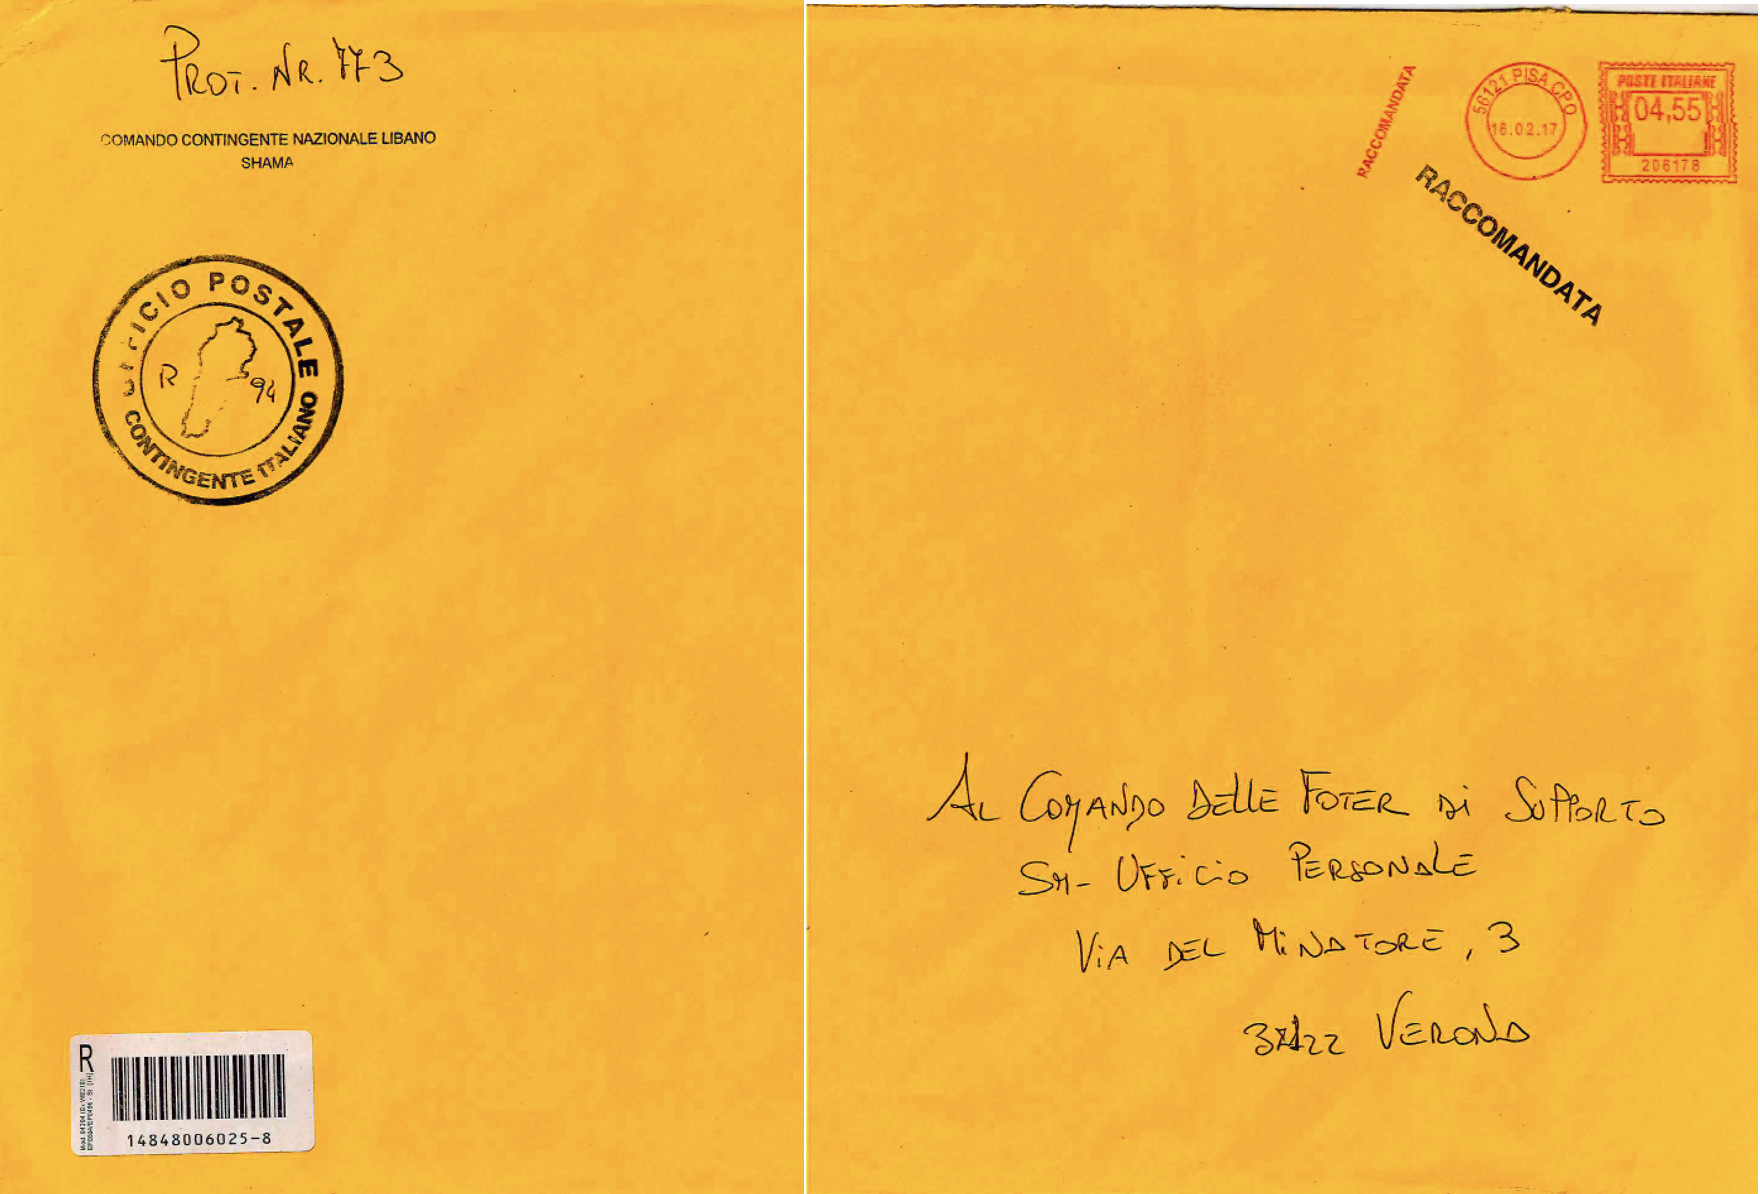 PROT. NR. 773
COMANDO CONTINGENTE NAZIONALE LIBANO
SHAMA
UFFICIO POSTALE
R 94
CONTINGENTE ITALIANO
R
14848006025-8
RACCOMANDATA
56121 PISA CPO
16.02.17
POSTE ITALIANE
04,55
206178
RACCOMANDATA
AL COMANDO DELLE FOTER DI SUPPORTO
SM- UFFICIO PERSONALE
VIA DEL MINATORE, 3
37122 VERONA